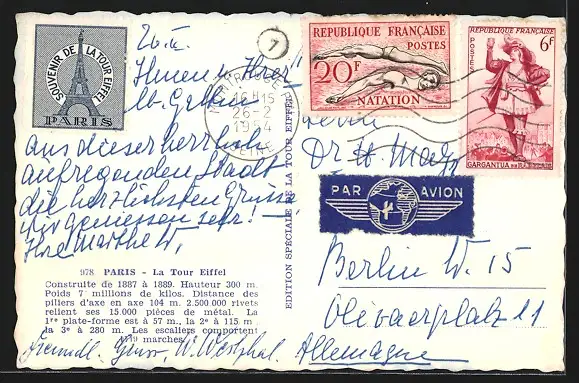 SOUVENIR DE LA TOUR EIFFEL
PARIS
26.II.
7
Ihnen u. Ihrer
lb. Gattin
aus dieser herrlich
aufregenden Stadt
die herzlichsten Grüsse
Wir geniessen sehr! –
Ihre Marthe W.
16H15
26-2
1954
SEINE
RÉPUBLIQUE FRANÇAISE
POSTES
20F
NATATION
RÉPUBLIQUE FRANÇAISE
POSTES
6F
GARGANTUA DE RABELAIS
Dr. H.
PAR AVION
Berlin W. 15
Olivaerplatz 11
Allemagne
EDITION SPÉCIALE DE LA TOUR EIFFEL
978 PARIS - La Tour Eiffel
Construite de 1887 à 1889. Hauteur 300 m.
Poids 7 millions de kilos. Distance des
piliers d'axe en axe 104 m. 2.500.000 rivets
relient ses 15.000 pièces de métal. La
1re plate-forme est à 57 m., la 2e à 115 m.
la 3e à 280 m. Les escaliers comportent
marches.
Freundl. Grüsse W. Westphal.